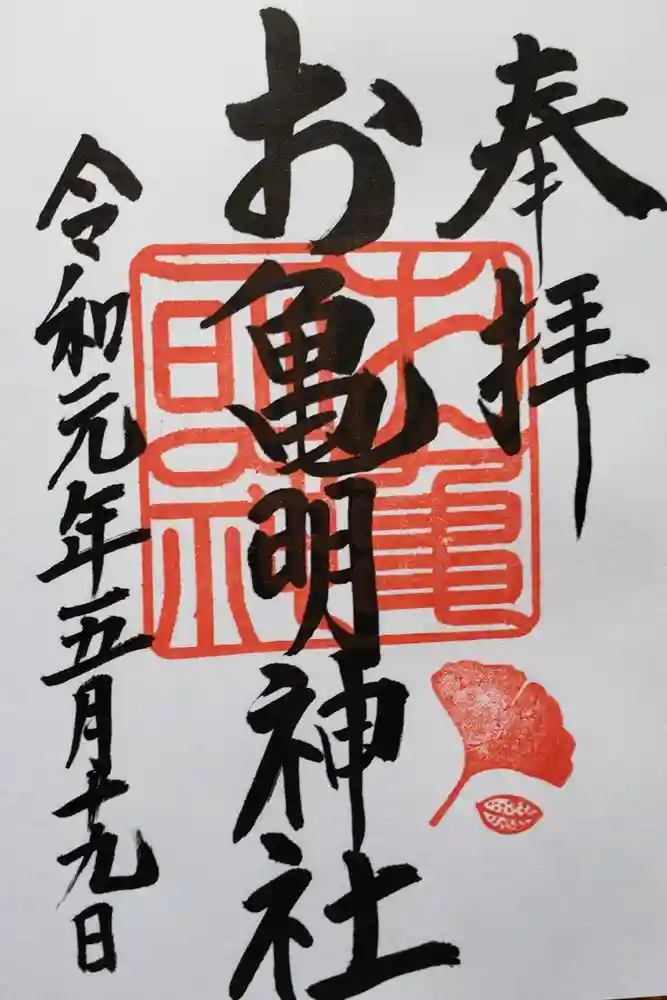 奉拝
お亀明神社
令和元年五月十九日